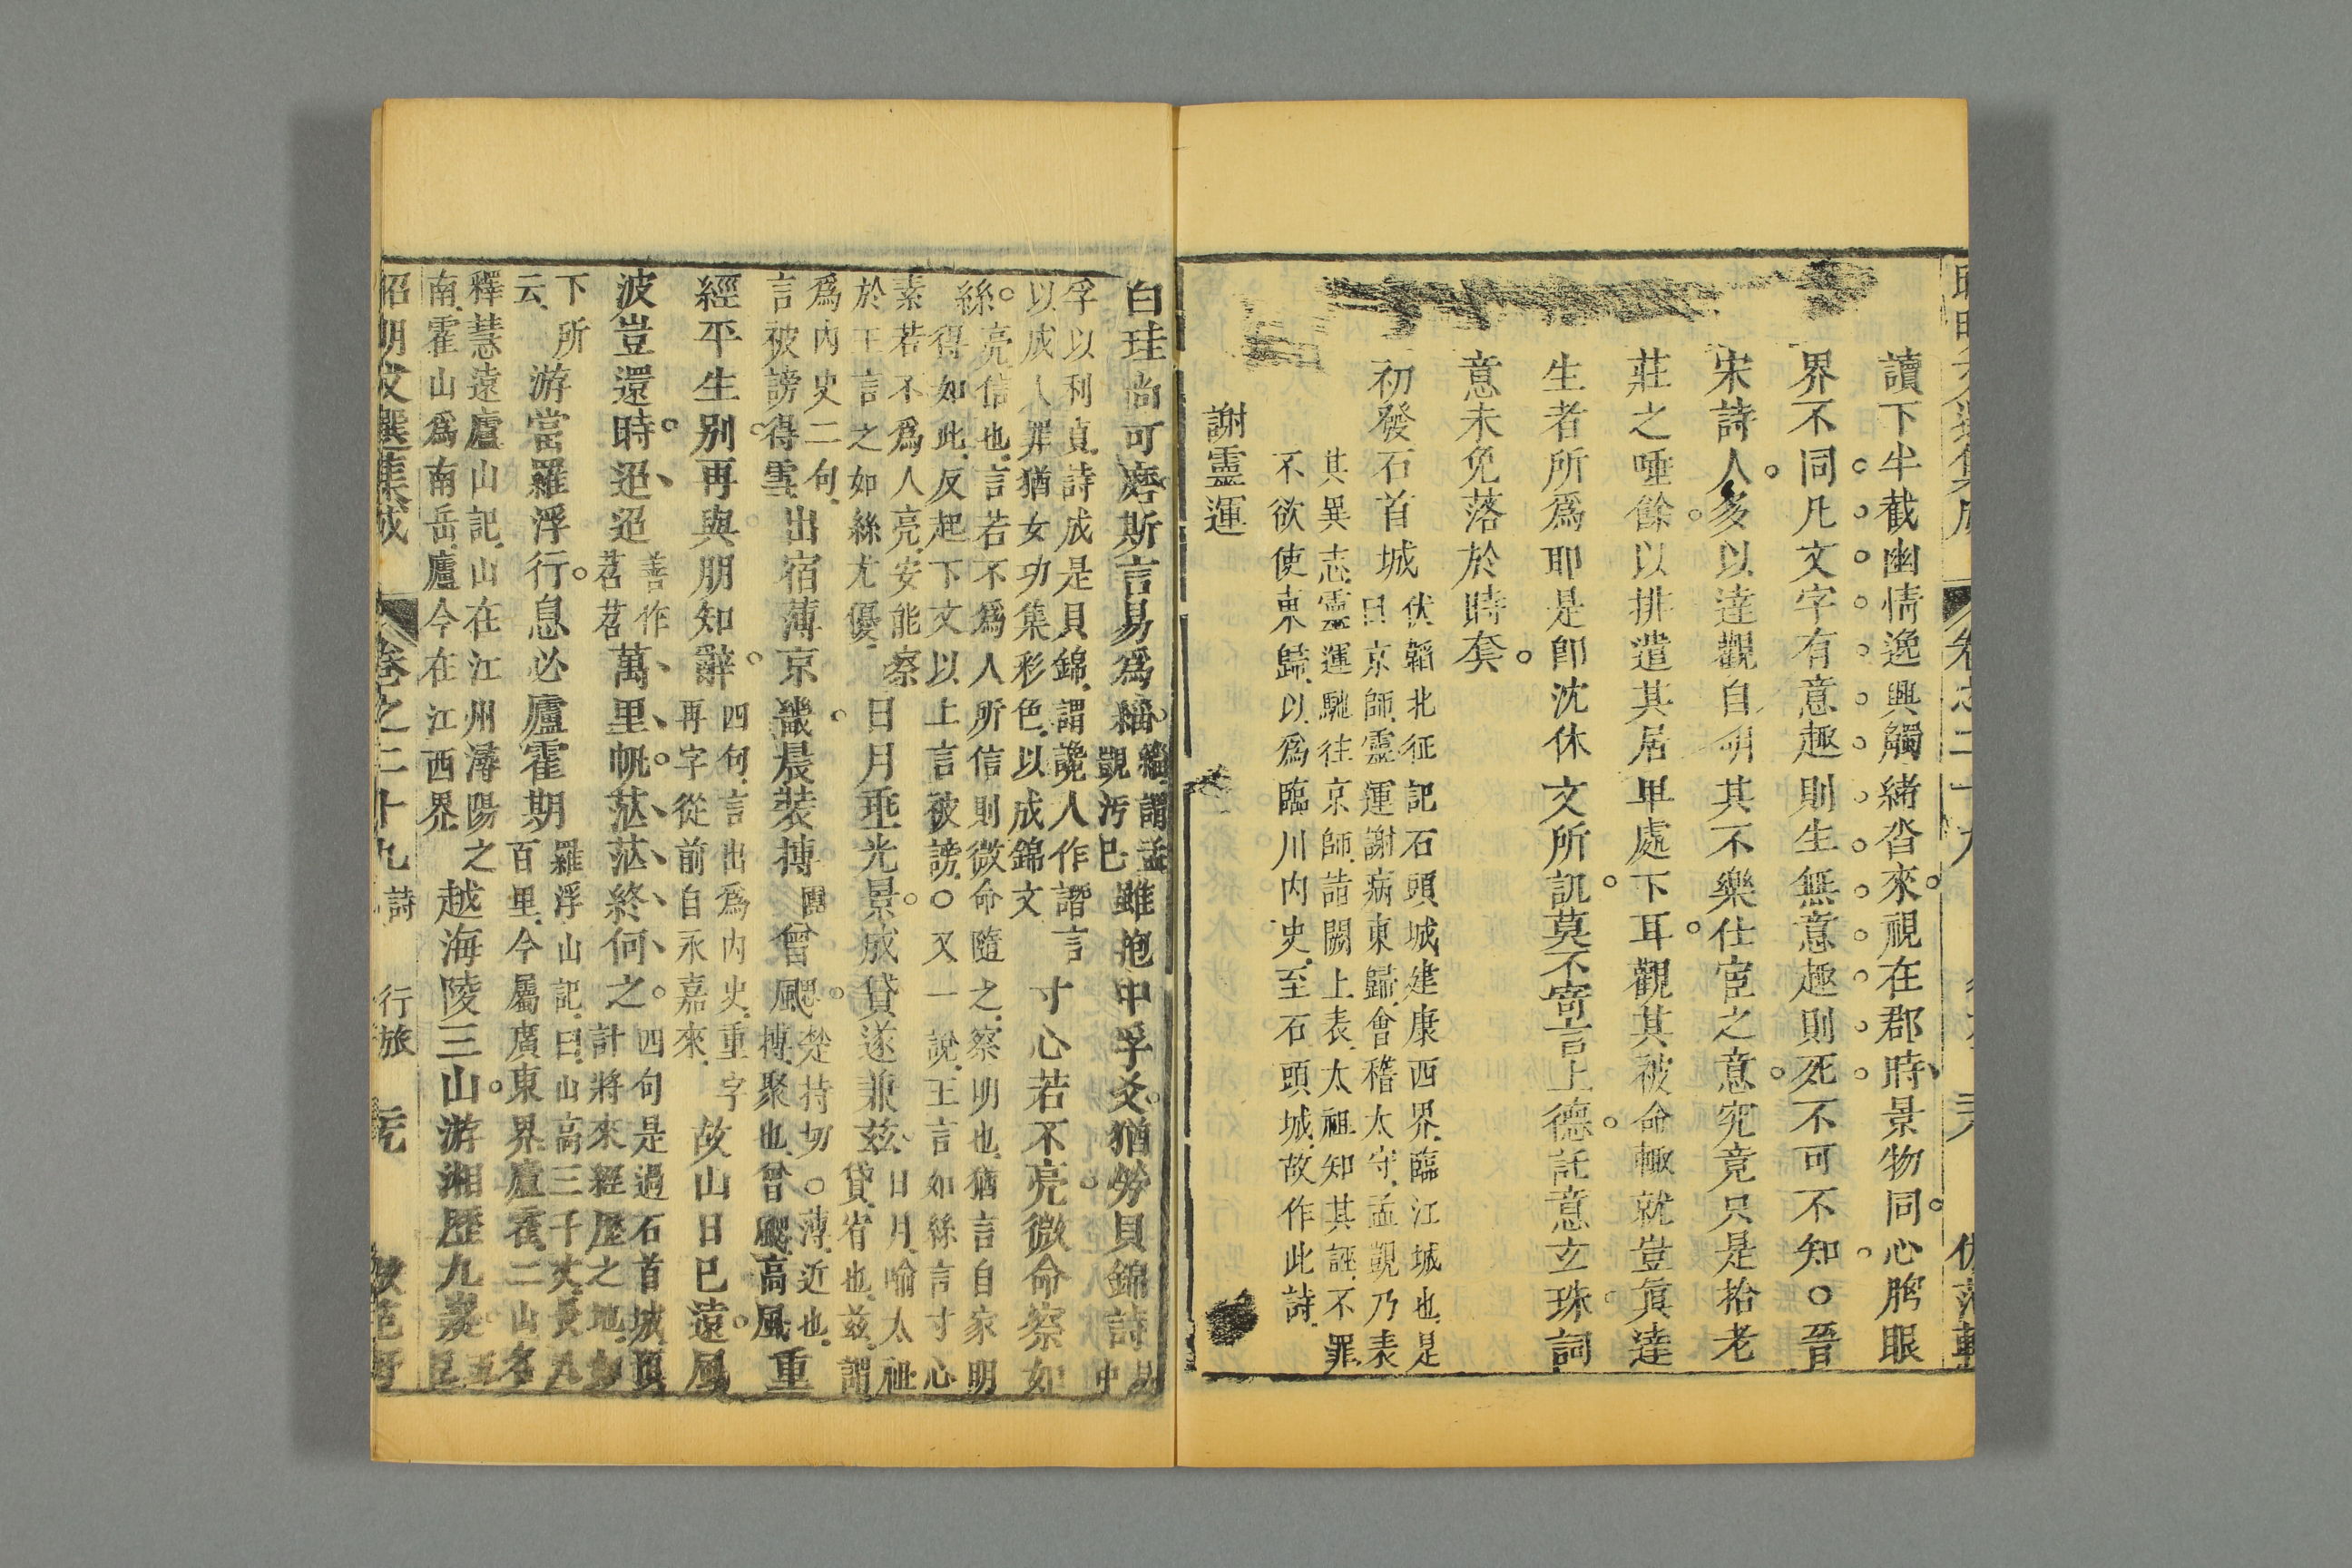 讀下半截幽情逸興觸緒沓來視在郡時景物同心胷眼
界不同凡文字有意趣則生無意趣則死不可不知○晉
宋詩人多以達觀自明其不樂仕宦之意究竟只是拾老
莊之唾餘以排遣其居卑處下耳觀其被命輒就豈眞達
生者所爲耶是卽沈休文所訊莫不寄言上德託意玄珠詞
意未免落於時套
初發石首城
伏韜北征記石頭城建康西界臨江城也是
曰京師靈運謝病東歸會稽太守孟覬乃表
其異志靈運馳往京師詣闕上表太祖知其誣不罪
不欲使東歸以爲臨川内史至石頭城故作此詩
謝靈運
白珪尚可磨斯言易爲緇
緇謂孟
覬污巳
雖抱中孚爻猶勞貝錦詩
易
中
孚以利貞詩成是貝錦謂讒人作譖言
以成人罪猶女功集彩色以成錦文
寸心若不亮微命察如
絲
亮信也言若不爲人所信則微命隨之察明也猶言自家明
得如此反起下文以上言被謗○又一說王言如絲言寸心
素若不爲人亮安能察
於王言之如絲尤優
日月垂光景成貸遂兼茲
日月喻太祖
貸宥也茲謂
爲内史二句
言被謗得雪
出宿薄京畿晨裝摶
團
曾颸
楚持切○薄近也
摶聚也曾颸高風
重
經平生别再與朋知辭
四句言出爲内史重字
再字從前自永嘉來
故山日已遠風
波豈還時迢迢
善作
苕苕
萬里帆茫茫終何之
四句是過石首城頂
計將來經歷之地如
下所
云
游當羅浮行息必廬霍期
羅浮山記曰山高三千丈長八
百里今屬廣東界廬霍二山名
釋慧遠廬山記山在江州潯陽之
南霍山爲南岳廬今在江西界
越海陵三山游湘歷九嶷
昭明文選集成
卷之二十九
詩
行旅